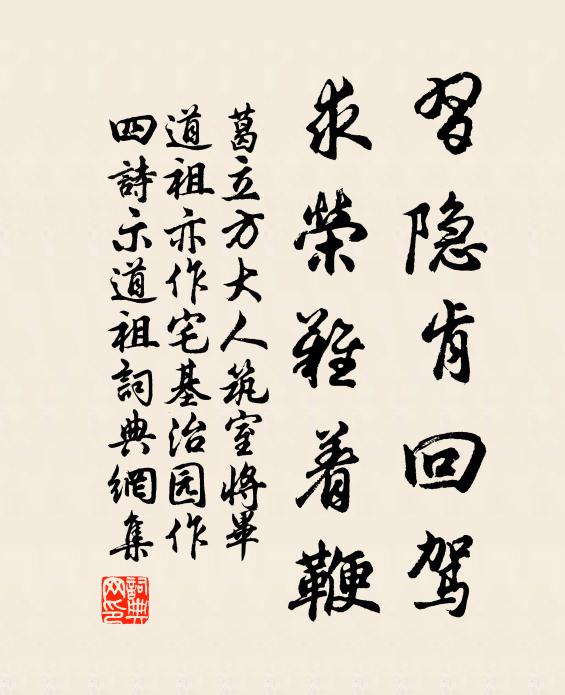 習隐肯回驾
求榮難着鞭
葛立方大人筑室將畢
道祖亦作宅基治园作
四詩示道祖詞典網集
詞典網印